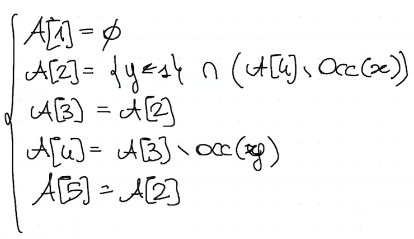 A[1] = ∅
A[2] = {y ← 1} ∩ (A[4] \ Occ(x))
A[3] = A[2]
A[4] = A[3] \ Occ(y)
A[5] = A[2]